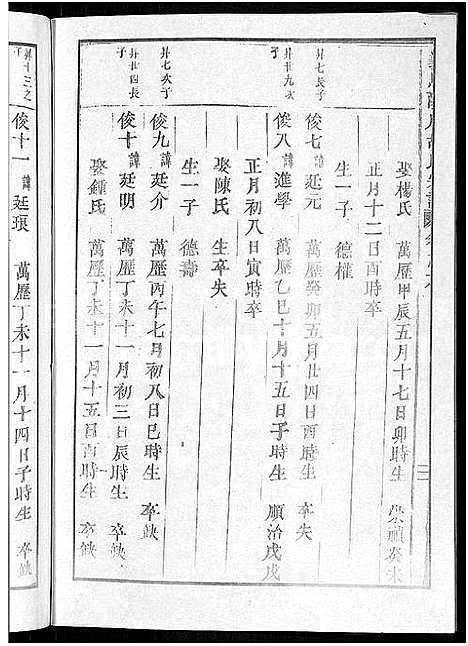 娶楊氏 萬歷甲辰五月十七日卯時生 崇禎癸未
正月十二日酉時卒
生一子 德權
昇七長子
俊七 諱廷元 萬歷癸卯五月廿四日酉時生 卒失
昇廿九次子
俊八 諱進學 萬歷乙巳十月十五日子時生 順治戊戌
正月初八日寅時卒
娶陳氏 生卒失
生一子 德壽
昇七次子
俊九 諱廷介 萬歷丙午七月初八日巳時生 卒缺
昇廿四長子
俊十 諱廷明 萬歷丁未十一月初三日辰時生 卒缺
娶鍾氏 萬歷丁未十一月十五日酉時生 卒缺
昇十三之子
俊十一 諱廷琅 萬歷丁未十一月十四日子時生 卒缺